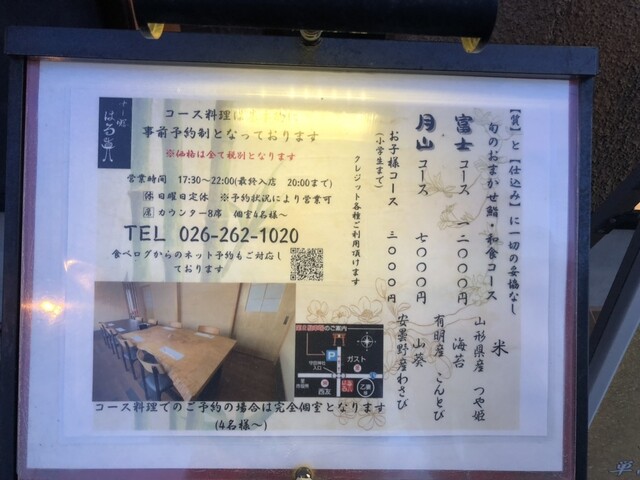 【質】と【仕込み】に一切の妥協なし
旬のおまかせ鮨・和食コース
富士コース 一二〇〇〇円
月山コース 七〇〇〇円
お子様コース 三〇〇〇円
(小学生まで)
クレジット各種ご利用頂けます
米 山形県産 つや姫
海苔 有明産 こんとび
山葵 安曇野産わさび
コース料理は
事前予約制となっております
※価格は全て税別となります
営業時間 17:30～22:00(最終入店 20:00まで)
休 日曜日定休 ※予約状況により営業可
席 カウンター8席 個室4名様～
TEL 026-262-1020
食べログからのネット予約もご対応し
ております
のご案内
P
ガスト
西友
コース料理でのご予約の場合は完全個室となります
(4名様～)